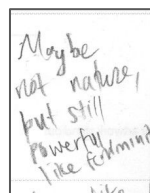 Maybe
not nature,
but still
powerful
like
like